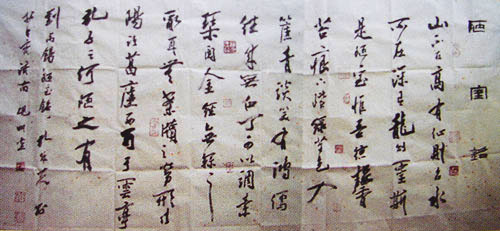 陋室銘
山不在高有仙則名水
不在深有龍則靈斯
是陋室惟吾德馨
苔痕上階綠草色入
簾青談笑有鴻儒
往來無白丁可以調素
琴閱金經無絲竹之
亂耳無案牘之勞形南
陽諸葛廬西蜀子雲亭
孔子云何陋之有
劉禹錫陋室銘一九九